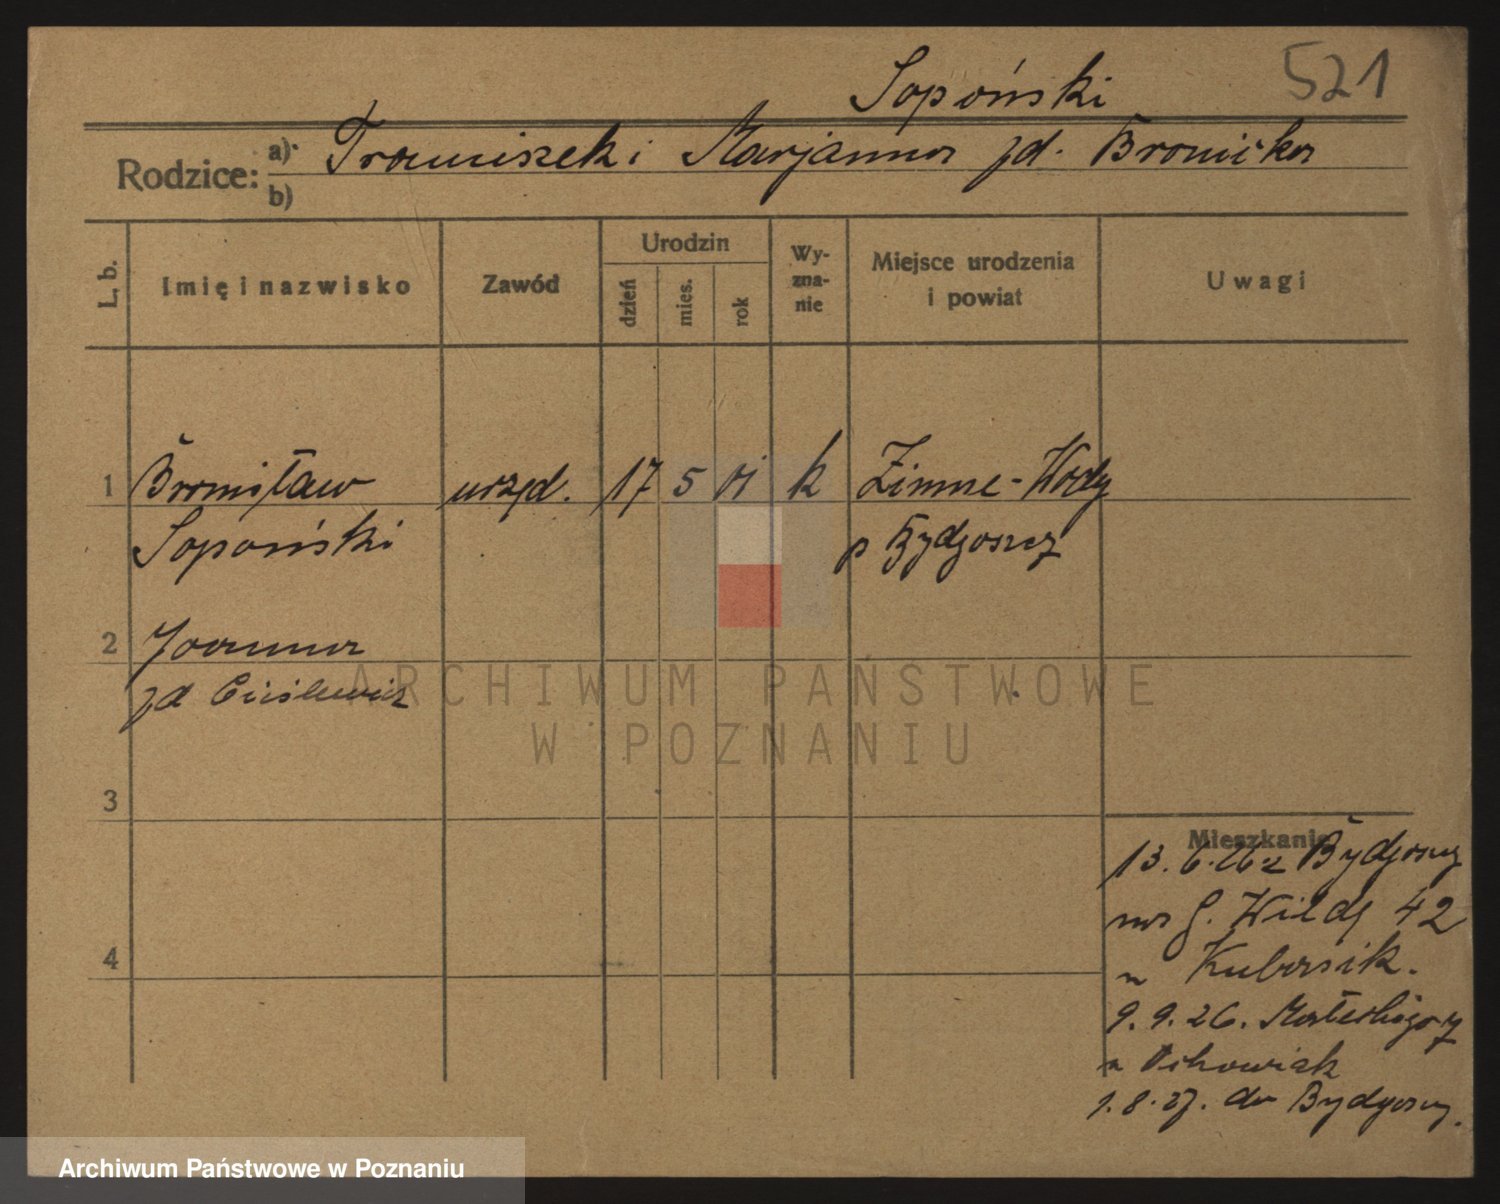 Sopoński
521
Rodzice:
a)
b)
Franciszek i Marjanna zd. Bronicka
L. b.
Imię i nazwisko
Zawód
Urodzin
dzień
mies.
rok
Wy-
zna-
nie
Miejsce urodzenia
i powiat
Uwagi
1
Bronisław
Sopoński
urzęd.
17
5
k
Zimne-Wody
p Bydgoszcz
2
Joanna
zd Cieślewicz
3
4
Mieszkanie
13. 6. 26 z Bydgoszcz
na G. Wildę 42
u Kubasik.
9. 9. 26. Małeckiego
u
1. 8. 27. do Bydgoszcz.
ARCHIWUM PAŃSTWOWE
W POZNANIU
Archiwum Państwowe w Poznaniu